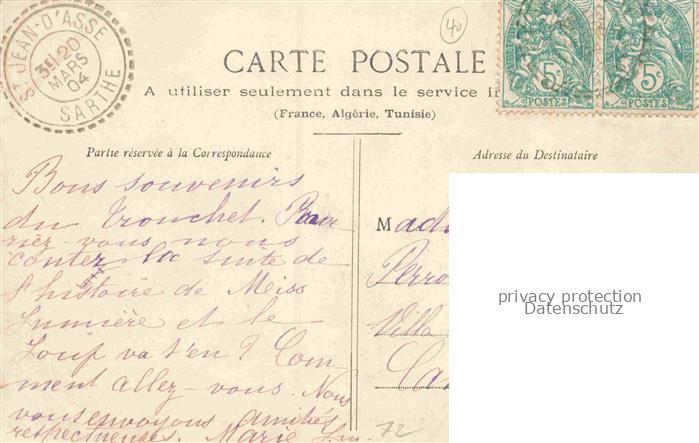 ST JEAN-D'ASSE
20
MARS
04
SARTHE
40
CARTE POSTALE
A utiliser seulement dans le service in
(France, Algérie, Tunisie)
5c
POSTES
5c
POSTES
Partie réservée à la Correspondance
Bons souvenirs
du Tronchet. Pour-
riez-vous nous
conter la suite de
l'histoire de Meiss
Lumière et le
Loup va t'en ? Com-
ment allez-vous. Nous
vous envoyons amitiés
respectueuses. Marie
Adresse du Destinataire
Mad
Perro
Villa
Ca
72
privacy protection
Datenschutz